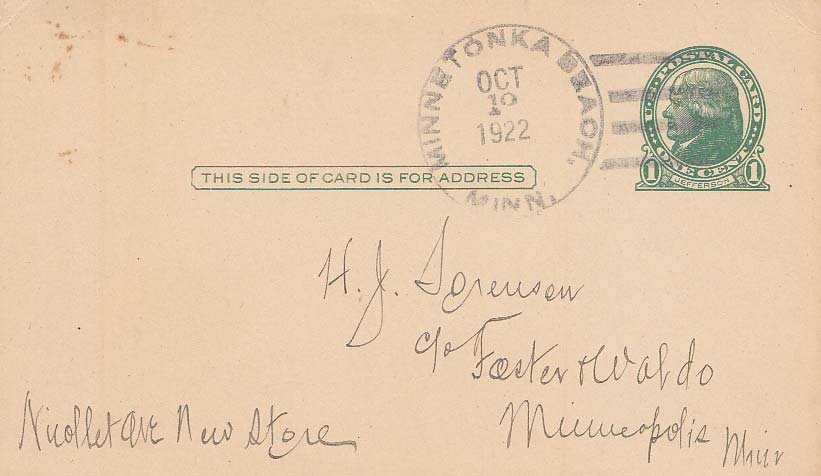 MINNETONKA BEACH, MINN.
OCT
19
1922
U.S. POSTAL CARD
ONE CENT
1 JEFFERSON 1
THIS SIDE OF CARD IS FOR ADDRESS
H. J. Sorensen
c/o Foster & Waldo
Minneapolis Minn
Nicollet Ave New Store